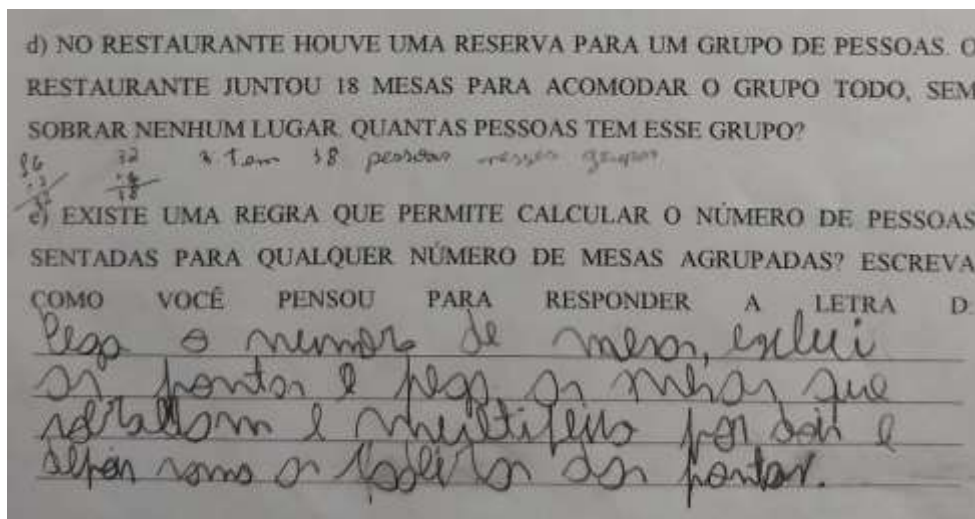 d) NO RESTAURANTE HOUVE UMA RESERVA PARA UM GRUPO DE PESSOAS. O
RESTAURANTE JUNTOU 18 MESAS PARA ACOMODAR O GRUPO TODO, SEM
SOBRAR NENHUM LUGAR. QUANTAS PESSOAS TEM ESSE GRUPO?
32 tem 38 pessoas nesses grupos
e) EXISTE UMA REGRA QUE PERMITE CALCULAR O NÚMERO DE PESSOAS
SENTADAS PARA QUALQUER NÚMERO DE MESAS AGRUPADAS? ESCREVA
COMO VOCÊ PENSOU PARA RESPONDER A LETRA D.
Pego o numero de mesas, exclui
as pontas e pego as mesas que
e multiplico por dois e
depois somo as das pontas.